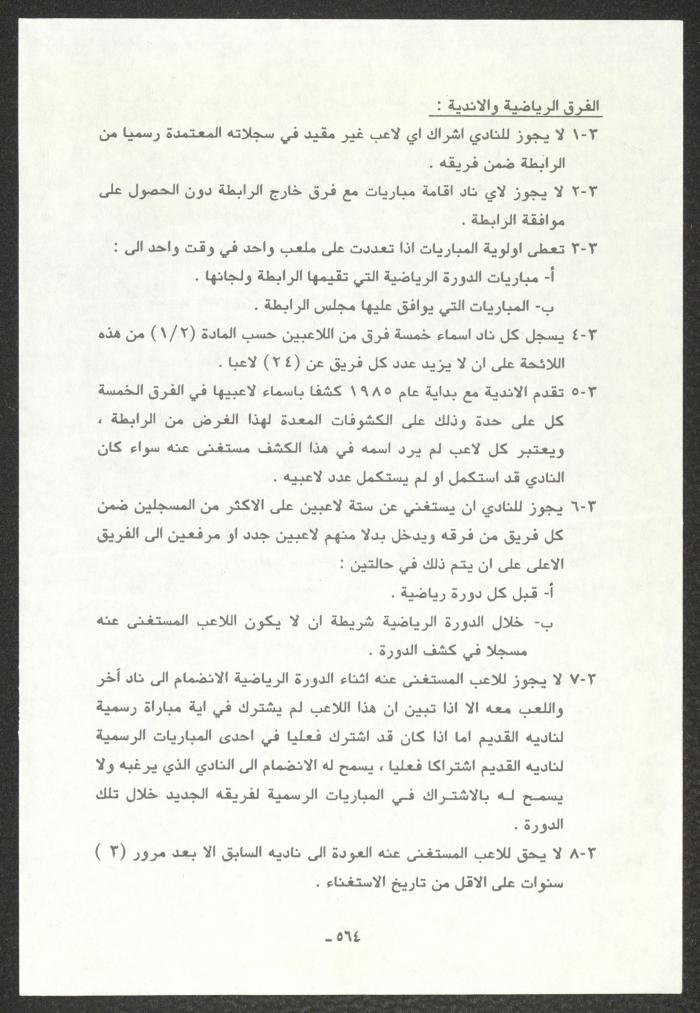 الفرق الرياضية والاندية :
٣-١ لا يجوز للنادي اشراك اي لاعب غير مقيد في سجلاته المعتمدة رسميا من
الرابطة ضمن فريقه .
٣-٢ لا يجوز لاي ناد اقامة مباريات مع فرق خارج الرابطة دون الحصول على
موافقة الرابطة .
٣-٣ تعطى اولوية المباريات اذا تعددت على ملعب واحد في وقت واحد الى :
أ- مباريات الدورة الرياضية التي تقيمها الرابطة ولجانها .
ب- المباريات التي يوافق عليها مجلس الرابطة .
٣-٤ يسجل كل ناد اسماء خمسة فرق من اللاعبين حسب المادة (١/٢) من هذه
اللائحة على ان لا يزيد عدد كل فريق عن (٢٤) لاعبا .
٣-٥ تقدم الاندية مع بداية عام ١٩٨٥ كشفا باسماء لاعبيها في الفرق الخمسة
كل على حدة وذلك على الكشوفات المعدة لهذا الغرض من الرابطة ،
ويعتبر كل لاعب لم يرد اسمه في هذا الكشف مستغنى عنه سواء كان
النادي قد استكمل او لم يستكمل عدد لاعبيه .
٣-٦ يجوز للنادي ان يستغني عن ستة لاعبين على الاكثر من المسجلين ضمن
كل فريق من فرقه ويدخل بدلا منهم لاعبين جدد او مرفعين الى الفريق
الاعلى على ان يتم ذلك في حالتين :
أ- قبل كل دورة رياضية .
ب- خلال الدورة الرياضية شريطة ان لا يكون اللاعب المستغنى عنه
مسجلا في كشف الدورة .
٣-٧ لا يجوز للاعب المستغنى عنه اثناء الدورة الرياضية الانضمام الى ناد آخر
واللعب معه الا اذا تبين ان هذا اللاعب لم يشترك في اية مباراة رسمية
لناديه القديم اما اذا كان قد اشترك فعليا في احدى المباريات الرسمية
لناديه القديم اشتراكا فعليا ، يسمح له الانضمام الى النادي الذي يرغبه ولا
يسمح له بالاشتراك في المباريات الرسمية لفريقه الجديد خلال تلك
الدورة .
٣-٨ لا يحق للاعب المستغنى عنه العودة الى ناديه السابق الا بعد مرور (٣ )
سنوات على الاقل من تاريخ الاستغناء .
٥٦٤ـ